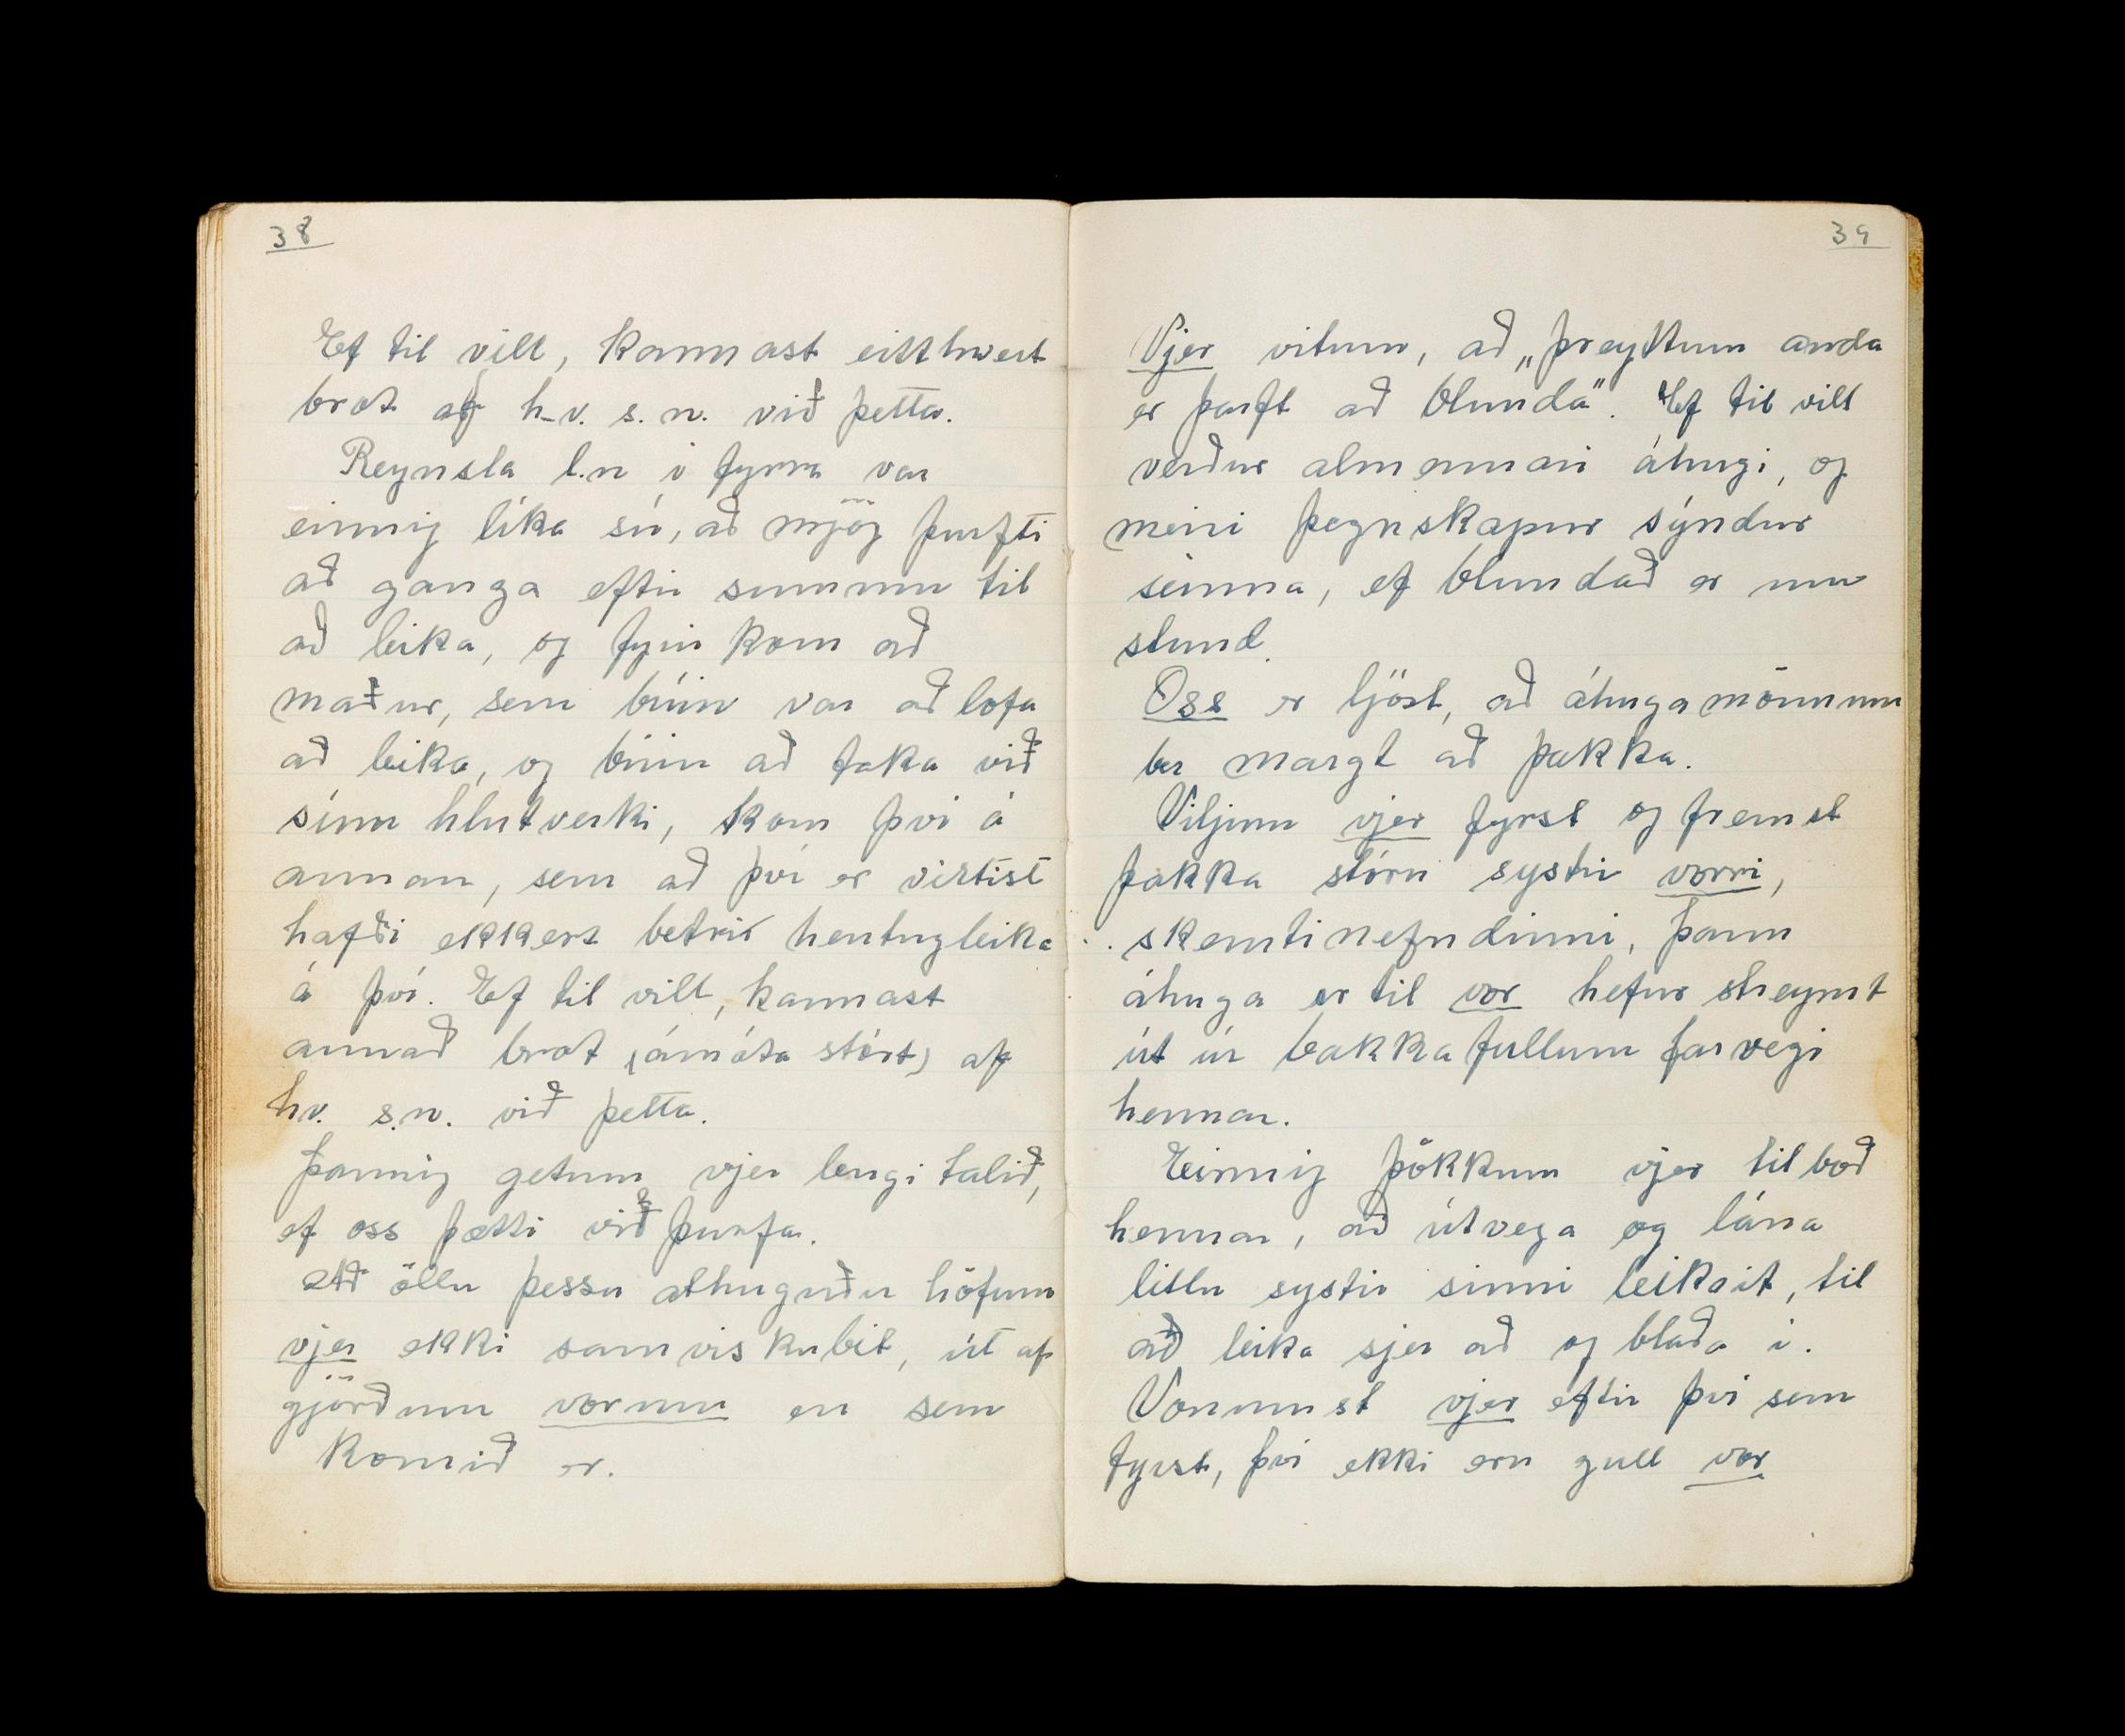 38
Ef til vill, kannast eitthvert
brot af h.v. s.n. við þetta.
Reynsla l.n í fyrra var
einnig líka sú, að mjög þurfti
að ganga eftir sumum til
að leika, og fyrir kom að
maður, sem búin var að lofa
að leika, og búin að taka við
sínu hlutverki, kom því á
annan, sem að því er virtist
hafði ekkert betri hentugleika
á því. Ef til vill, kannast
annað brot (ámóta stórt) af
hv. s.n. við þetta.
Þannig getum vjer lengi talið,
ef oss þætti við þurfa.
Að öllu þessu athuguðu höfum
vjer ekki samviskubit, út af
gjörðum vorum en sem
komið er.
39
Vjer vitum, að „þreyttum anda
er þarft að blunda". Ef til vill
verður almennari áhugi, og
meiri þegnskapur sýndur
seinna, ef blundað er um
stund.
Oss er ljóst, að áhugamönnum
ber margt að þakka.
Viljum vjer fyrst og fremst
þakka stóru systir vorri,
skemtinefndinni, þann
áhuga er til vor hefur streymt
út úr bakkafullum farvegi
hennar.
Einnig þökkum vjer tilboð
hennar, að útvega og lána
litlu systir sinni leikrit, til
að leika sjer að og blaða í.
Vonumst vjer eftir því sem
fyrst, því ekki eru gull vor